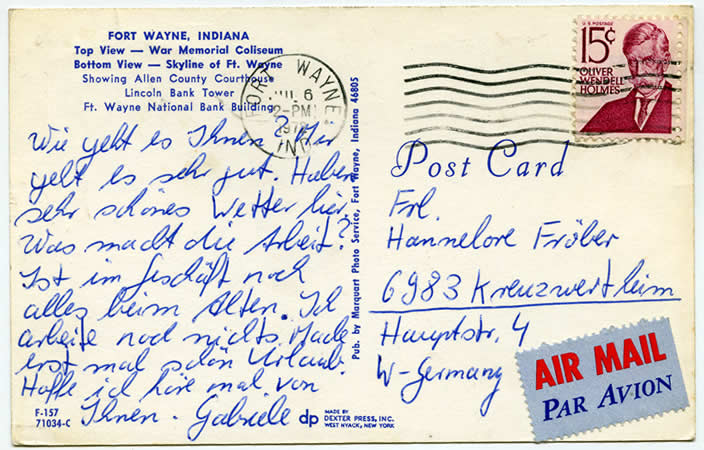 FORT WAYNE, INDIANA
Top View — War Memorial Coliseum
Bottom View — Skyline of Ft. Wayne
Showing Allen County Courthouse
Lincoln Bank Tower
Ft. Wayne National Bank Building
FORT WAYNE
6
PM
IND
U.S. POSTAGE
15¢
OLIVER
WENDELL
HOLMES
Wie geht es Ihnen? Mir
geht es sehr gut. Haben
sehr schönes Wetter hier.
Was macht die Arbeit?
Ist im Geschäft noch
alles beim Alten. Ich
arbeite noch nichts. Mache
erst mal schön Urlaub.
Hoffe ich höre mal von
Ihnen. Gabriele
F-157
71034-C
dp
MADE BY
DEXTER PRESS, INC.
WEST NYACK, NEW YORK
Pub. by Marquart Photo Service, Fort Wayne, Indiana 46805
Post Card
Frl.
Hannelore Fröber
6983 Kreuzwertheim
Hauptstr. 4
W-Germany
AIR MAIL
PAR AVION